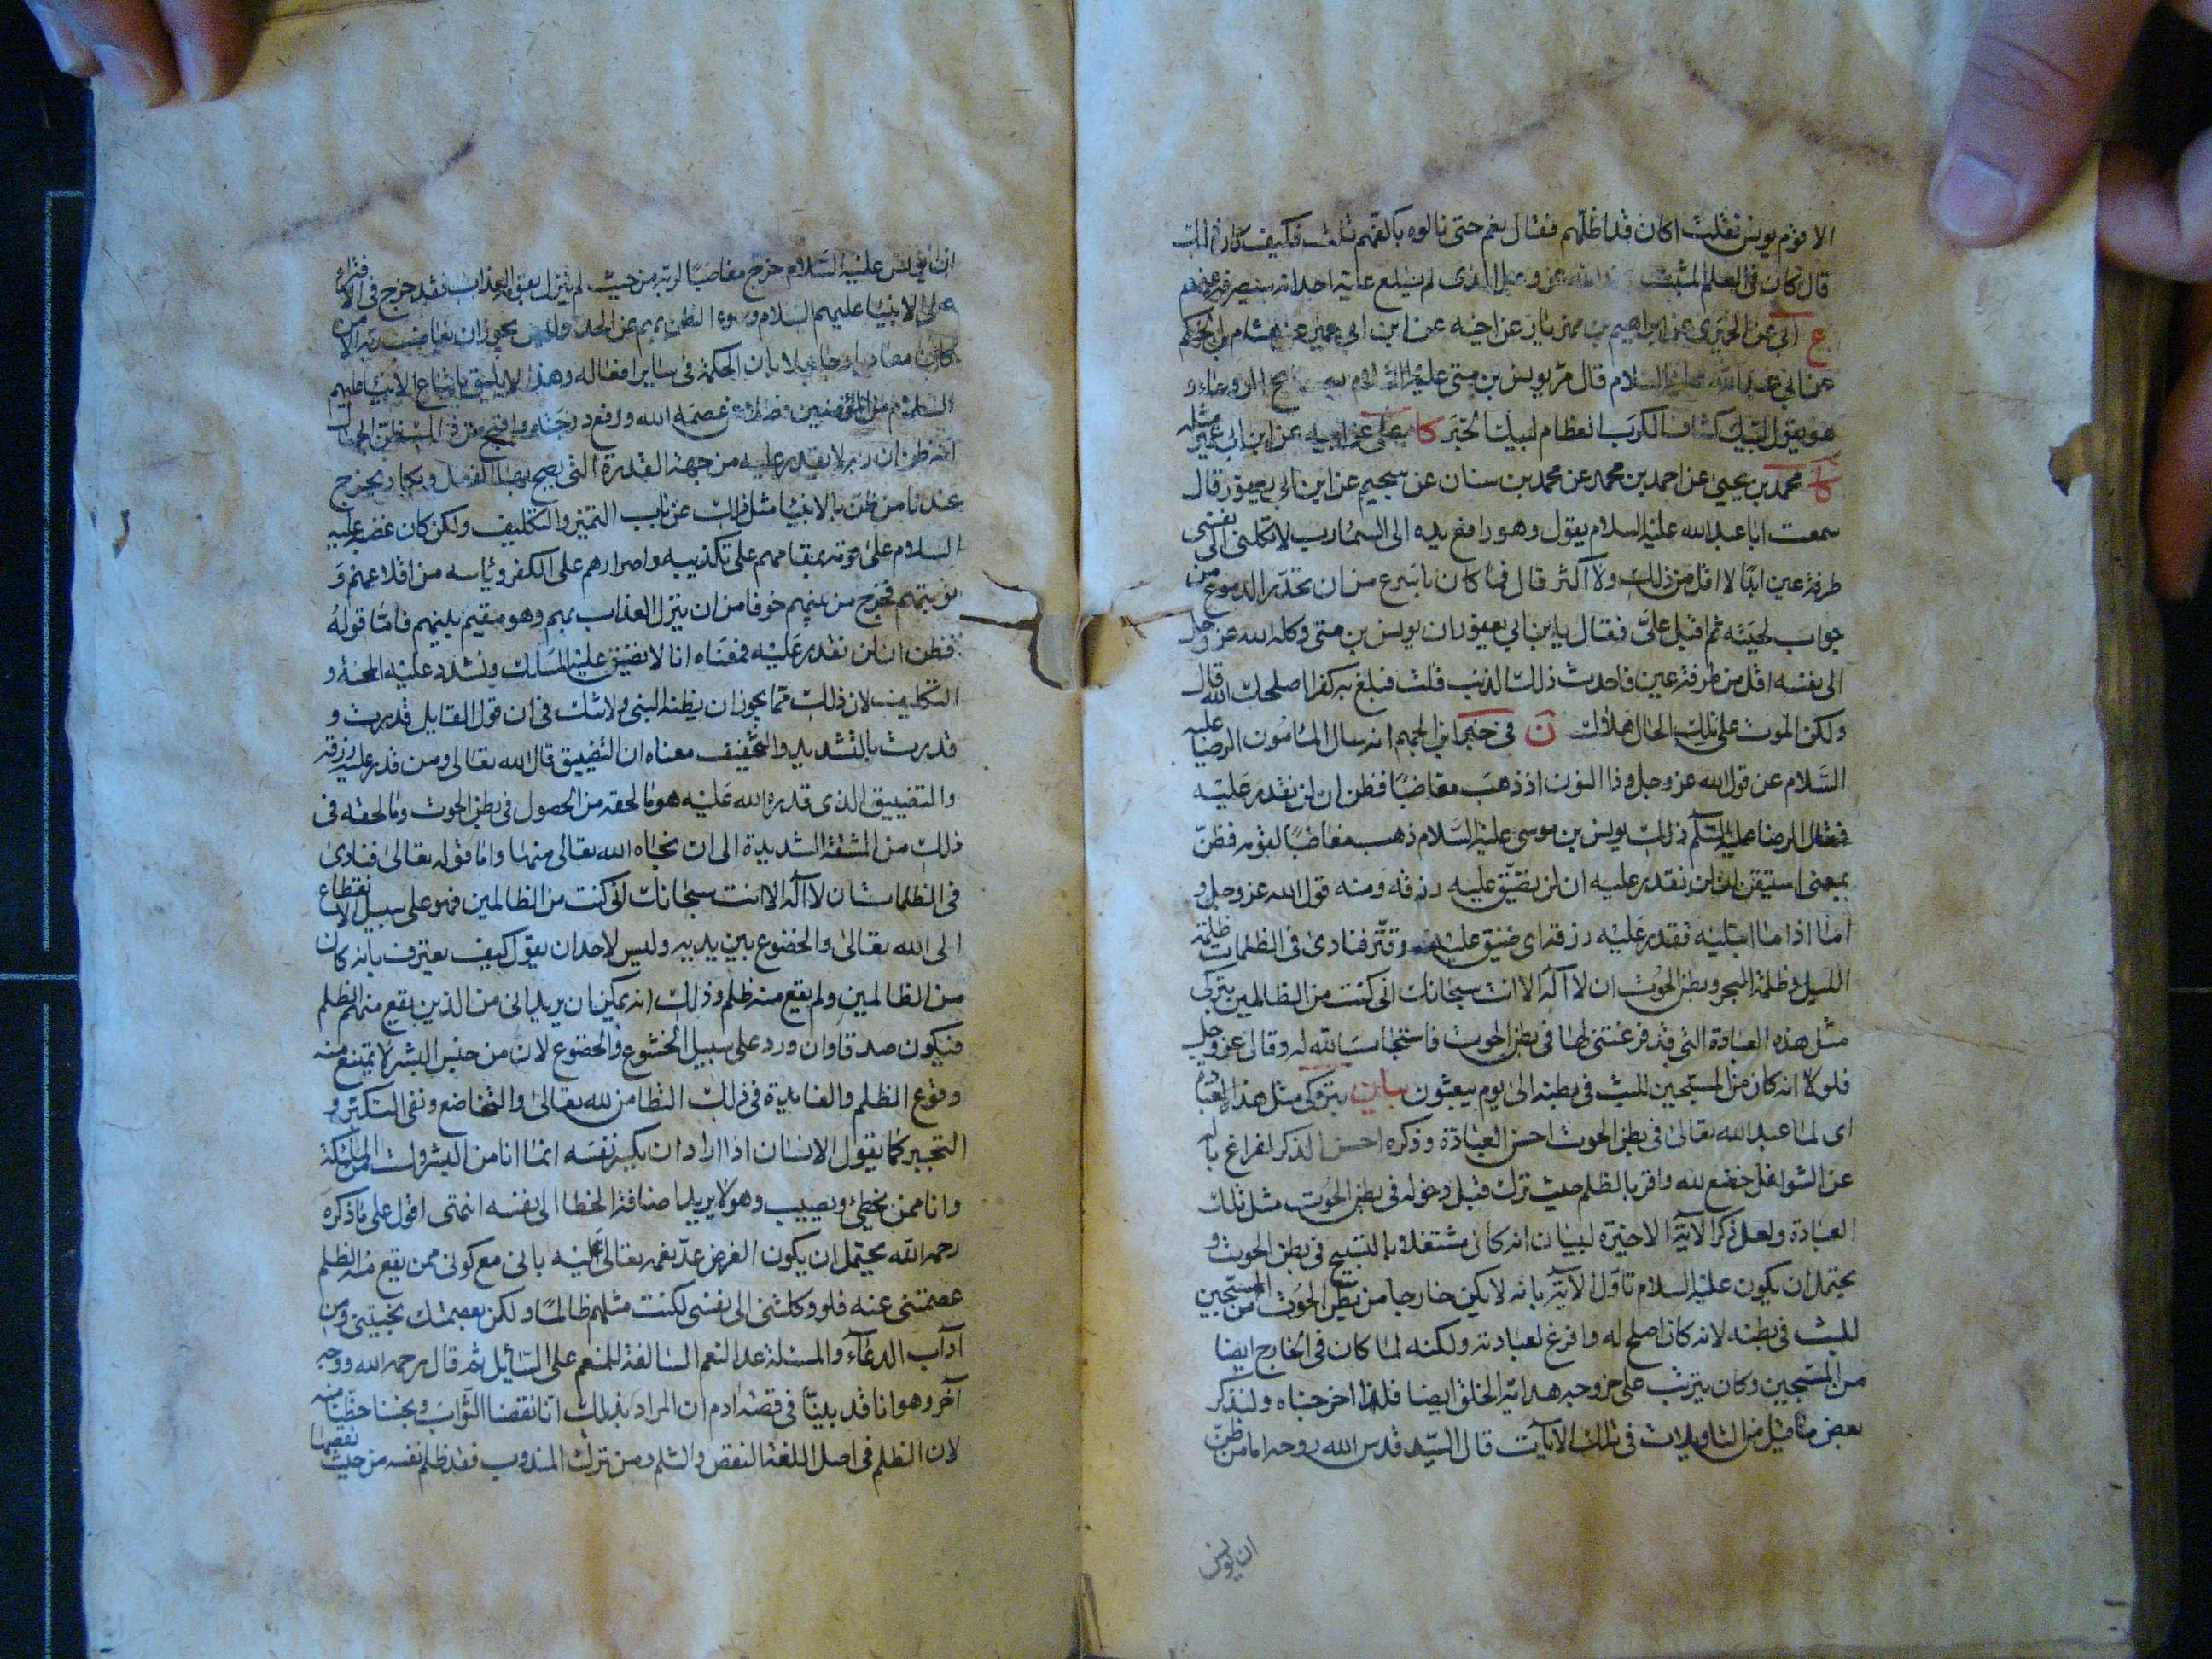 الا قوم يونس فقلت اكان قد اظلهم فقال نعم حتى نالوه باكفهم قلت فكيف كان ذلك
قال كان في العلم المثبت عند الله عز وجل الذى لم يطلع عليه احد انه سيصرفه عنهم
ع ابى عن الحميرى عن ابراهيم بن مهزيار عن اخيه عن ابن ابى عمير عن هشام بن الحكم
عن ابي عبد الله عليه السلام قال مر يونس بن متى عليه السلام الروحاء و
هو يقول لبيك كشاف الكرب العظام لبيك الخبر كا على عن ابيه عن ابن ابي عمير مثله
كا محمد بن يحيى عن احمد بن محمد عن محمد بن سنان عن سجيم عن ابن ابي يعفور قال
سمعت ابا عبد الله عليه السلام يقول وهو رافع يده الى السماء رب لا تكلنى الى نفسى
طرفة عين ابدا لا اقل من ذلك ولا اكثر قال فما كان باسرع من ان تحدر الدموع من
جوانب لحيته ثم اقبل علىّ فقال يا ابن ابي يعفور ان يونس بن متى وكله الله عز وجل
الى نفسه اقل من طرفة عين فاحدث ذلك الذنب قلت فبلغ به كفرا اصلحك الله قال
ولكن الموت على تلك الحال هلاك ن فى خبر ابن الجهم انه سال المأمون الرضا عليه
السلام عن قول الله عز وجل وذا النون اذ ذهب مغاضبا فظن ان لن نقدر عليه
فقال الرضا عليه السلم ذلك يونس بن موسى عليه السلام ذهب مغاضبا لقومه فظنّ
بمعنى استيقن ان لن نقدر عليه ان لن نضيّق عليه رزقه ومنه قول الله عز وجل و
اما اذا ما ابتليه فقدر عليه رزقه اى ضيق عليه وقتّر فنادى فى الظلمات ظلمة
الليل وظلمة البحر وبطن الحوت ان لا اله الا انت سبحانك انى كنت من الظالمين بتركى
مثل هذه العبادة التى قد فرغتنى لها فى بطن الحوت فاستجاب الله له وقال عز وجل
فلولا انه كان من المسبحين للبث فى بطنه الى يوم يبعثون بيان بتركى مثل هذه العبادة
اى لما عبد الله تعالى فى بطن الحوت احسن العبادة وذكره احسن الذكر لفراغ باله
عن الشواغل خضع لله واقر بالظلم حيث ترك قبل دخوله فى بطن الحوت مثل تلك
العبادة ولعل ذكر الآية الاخيرة لبيان انه كان مشتغلا بالتسبيح فى بطن الحوت و
يحتمل ان يكون عليه السلام تاوّل الآية بانه لا يكن خارجا من بطن الحوت من المسبّحين
للبث فى بطنه لانه كان اصلح له وافرغ لعبادته ولكنه لما كان فى الخارج ايضا
من المسبحين وكان يترتب على خروجه هداية الخلق ايضا فلذا اخرجناه ولنذكر
بعض ما قيل من التاويلات فى تلك الآيات قال السيّد قدس الله روحه اما من ظنّ
ان يونس
ان يونس عليه السلام خرج مغاضبا لربه من حيث لم ينزل بقومه العذاب فقد خرج فى الافتراء
على الانبيا عليهم السلام وسوء الظن بهم عن الحد وليس يجوز ان يغاضب ربه الا من
كان معاديا له وجاهلا بان الحكمة فى ساير افعاله وهذا لا يليق باتباع الانبيا عليهم
السلام من المؤمنين فضلا عمن عصمه الله ورفع درجته واقبح من ذلك ظن الجهال
انه ظن ان ربه لا يقدر عليه من جهة القدرة التى يصح بها الفعل ويكاد يخرج
عندنا من ظن بالانبيا مثل ذلك عن باب التميز والتكليف ولكن كان غضبه عليه
السلام على قومه بمقامهم على تكذيبه واصرارهم على الكفر وياسه من اقلاعهم و
توبتهم فخرج من بينهم خوفا من ان ينزل العذاب بهم وهو مقيم بينهم فامّا قوله
فظن ان لن نقدر عليه فمعناه انا لا نضيق عليه المسلك ونشدد عليه المحنة و
التكليف لان ذلك مما يجوز ان يظنه النبى ولا شك فى ان قول القايل قدرت و
قدرت بالتشديد والتخفيف معناه ان التضييق قال الله تعالى ومن قدر عليه رزقه
والتضييق الذى قدره الله عليه هو ما لحقه من الحصول فى بطن الحوت وما لحقه فى
ذلك من المشقة الشديدة الى ان نجاه الله تعالى منها واما قوله تعالى فنادى
فى الظلمات ان لا اله الا انت سبحانك انى كنت من الظالمين فهو على سبيل الانقطاع
الى الله تعالى والخضوع بين يديه وليس لاحد ان يقول كيف يعترف بانه كان
من الظالمين ولم يقع منه ظلم وذلك انه يمكن ان يريد انى من الذين يقع منهم الظلم
فيكون صدقا وان ورد على سبيل الخشوع والخضوع لان من جنس البشر لا يمتنع منه
وقوع الظلم والفايدة فى ذلك التطامن لله تعالى والتخاضع ونفى التكبر و
التجبر كما يقول الانسان اذا اراد ان يكسر نفسه انما انا من البشر ولست من الملئكة
وانا ممن يخطئ ويصيب وهو لا يريد اضافة الخطا الى نفسه انتهى اقول على ما ذكره
رحمه الله يحتمل ان يكون الغرض عدّ نعمه تعالى عليه بانى مع كونى ممن يقع منه الظلم
عصمتنى عنه فلو وكلتنى الى نفسى لكنت مثلهم ظالما ولكن بعصمتك نجيتنى ومن
آداب الدعآء والمسئلة عد النعم السالفة للمنعم على السّائل ثم قال رحمه الله ووجه
آخر وهو انا قد بينّا فى قصة ادم ان المراد بذلك انا نقصنا الثّواب وبخسنا حظّنا منه
لان الظلم فى اصل اللغة النقص والثلم ومن ترك المندوب فقد ظلم نفسه من حيث نقصها